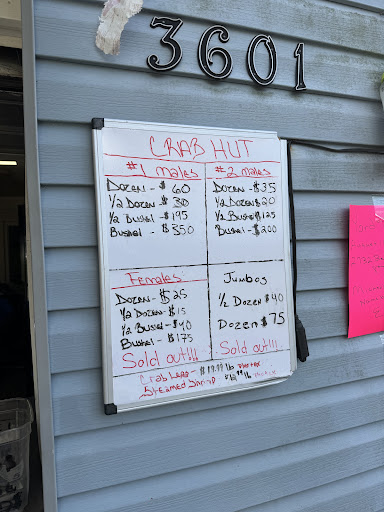 3601
CRAB HUT
#1 males
Dozen - $ 60
1/2 Dozen $ 30
1/2 Bushel - $195
Bushel - $350
#2 males
Dozen - $35
1/2 Dozen $20
1/2 Bushel $125
Bushel - $200
Females
Dozen - $25
1/2 Dozen - $15
1/2 Bushel - $90
Bushel - $175
Sold out!!!
Jumbos
1/2 Dozen $40
Dozen $75
Sold out!!!
Crab Legs - $19.99 lb
Steamed Shrimp $12.99 lb